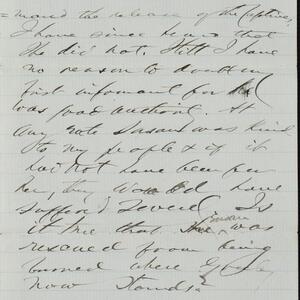 = mand the release of the captives,
I have since heard that
she did not. Still I have
no reason to doubt my
first informant for he
was good authority. At
any rate Susan was kind
to my people & if it
had not have been for
her, they would have
suffered severely Is
it true that Susan was
rescued from being
burned where
now stands